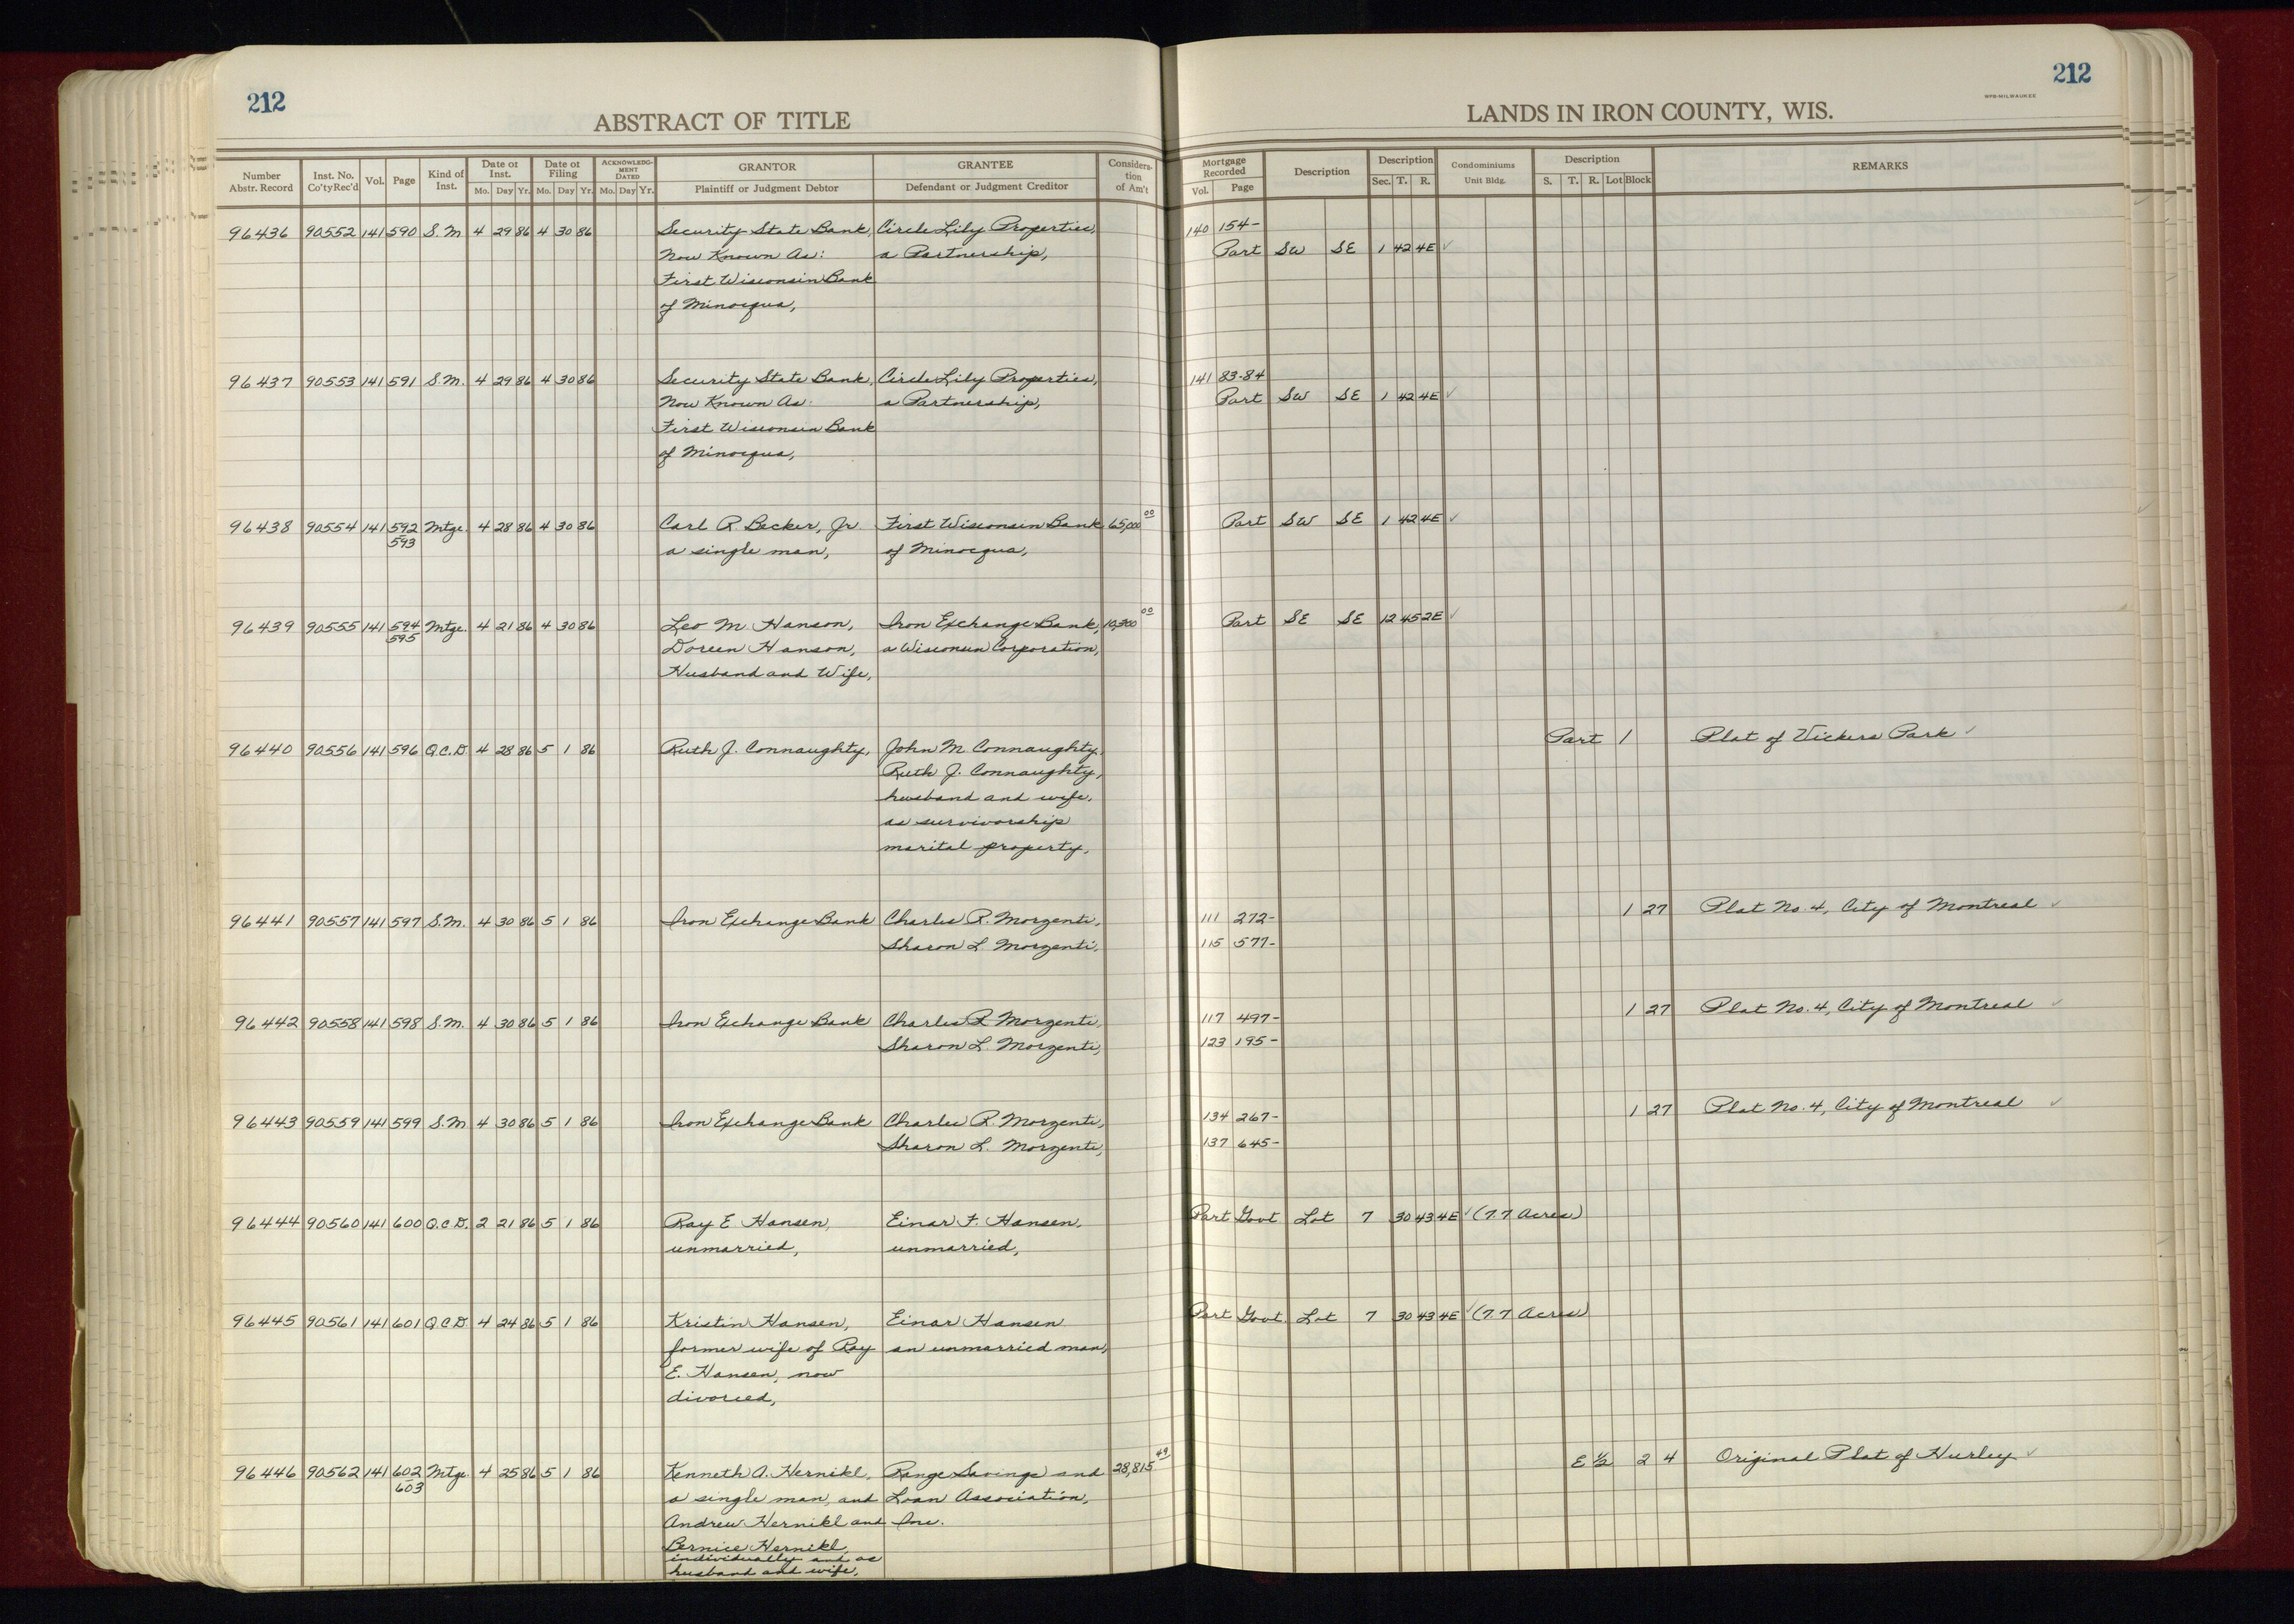 212
ABSTRACT OF TITLE
Number Abstr. Record Inst. No. Co'ty Rec'd Vol. Page Kind of Inst. Date of Inst. Mo. Day Yr. Date of Filing Mo. Day Yr. ACKNOWLEDGMENT DATED Mo. Day Yr. GRANTOR Plaintiff or Judgment Debtor GRANTEE Defendant or Judgment Creditor Consideration of Am't
212
WPB-MILWAUKEE
LANDS IN IRON COUNTY, WIS.
Mortgage Recorded Vol. Page Description Description Sec. T. R. Condominiums Unit Bldg. Description S. T. R. Lot Block REMARKS
96436 90552 141 590 S.M 4 29 86 4 30 86 Security State Bank, Circle Lily Properties, 140 154-
Now Known As: a Partnership, Part SW SE 1 42 4E ✓
First Wisconsin Bank
of Minocqua,
96437 90553 141 591 S.M. 4 29 86 4 30 86 Security State Bank, Circle Lily Properties, 141 83-84
Now Known As: a Partnership, Part SW SE 1 42 4E ✓
First Wisconsin Bank
of Minocqua,
96438 90554 141 592 Mtge. 4 28 86 4 30 86 Carl R. Becker, Jr First Wisconsin Bank 65,000 00 Part SW SE 1 42 4E ✓
593 a single man, of Minocqua,
96439 90555 141 594 Mtge. 4 21 86 4 30 86 Leo M. Hanson, Iron Exchange Bank, 10,300 00 Part SE SE 12 45 2E ✓
595 Doreen Hanson, a Wisconsin Corporation,
Husband and Wife,
96440 90556 141 596 Q.C.D 4 28 86 5 1 86 Ruth J. Connaughty, John M. Connaughty, Part 1 Plat of Vickers Park ✓
Ruth J. Connaughty,
husband and wife,
as survivorship
marital property,
96441 90557 141 597 S.M. 4 30 86 5 1 86 Iron Exchange Bank Charles R. Morzenti, 111 272- 1 27 Plat No. 4, City of Montreal ✓
Sharon L. Morzenti, 115 577-
96442 90558 141 598 S.M. 4 30 86 5 1 86 Iron Exchange Bank Charles R. Morzenti, 117 497- 1 27 Plat No. 4, City of Montreal ✓
Sharon L. Morzenti, 123 195-
96443 90559 141 599 S.M 4 30 86 5 1 86 Iron Exchange Bank Charles R. Morzenti, 134 267- 1 27 Plat No. 4, City of Montreal ✓
Sharon L. Morzenti, 137 645-
96444 90560 141 600 Q.C.D. 2 21 86 5 1 86 Ray E. Hansen, Einar F. Hansen, Part Govt Lot 7 30 43 4E ✓ (7.7 Acres)
unmarried, unmarried,
96445 90561 141 601 Q.C.D. 4 24 86 5 1 86 Kristin Hansen, Einar Hansen Part Govt. Lot 7 30 43 4E ✓ (7.7 Acres)
former wife of Ray an unmarried man,
E. Hansen, now
divorced,
96446 90562 141 602 Mtge. 4 25 86 5 1 86 Kenneth A. Hernikl, Range Savings and 28,815 49 E 1/2 2 4 Original Plat of Hurley ✓
603 a single man, and Loan Association,
Andrew Hernikl and Inc.
Bernice Hernikl,
individually and as
husband and wife,